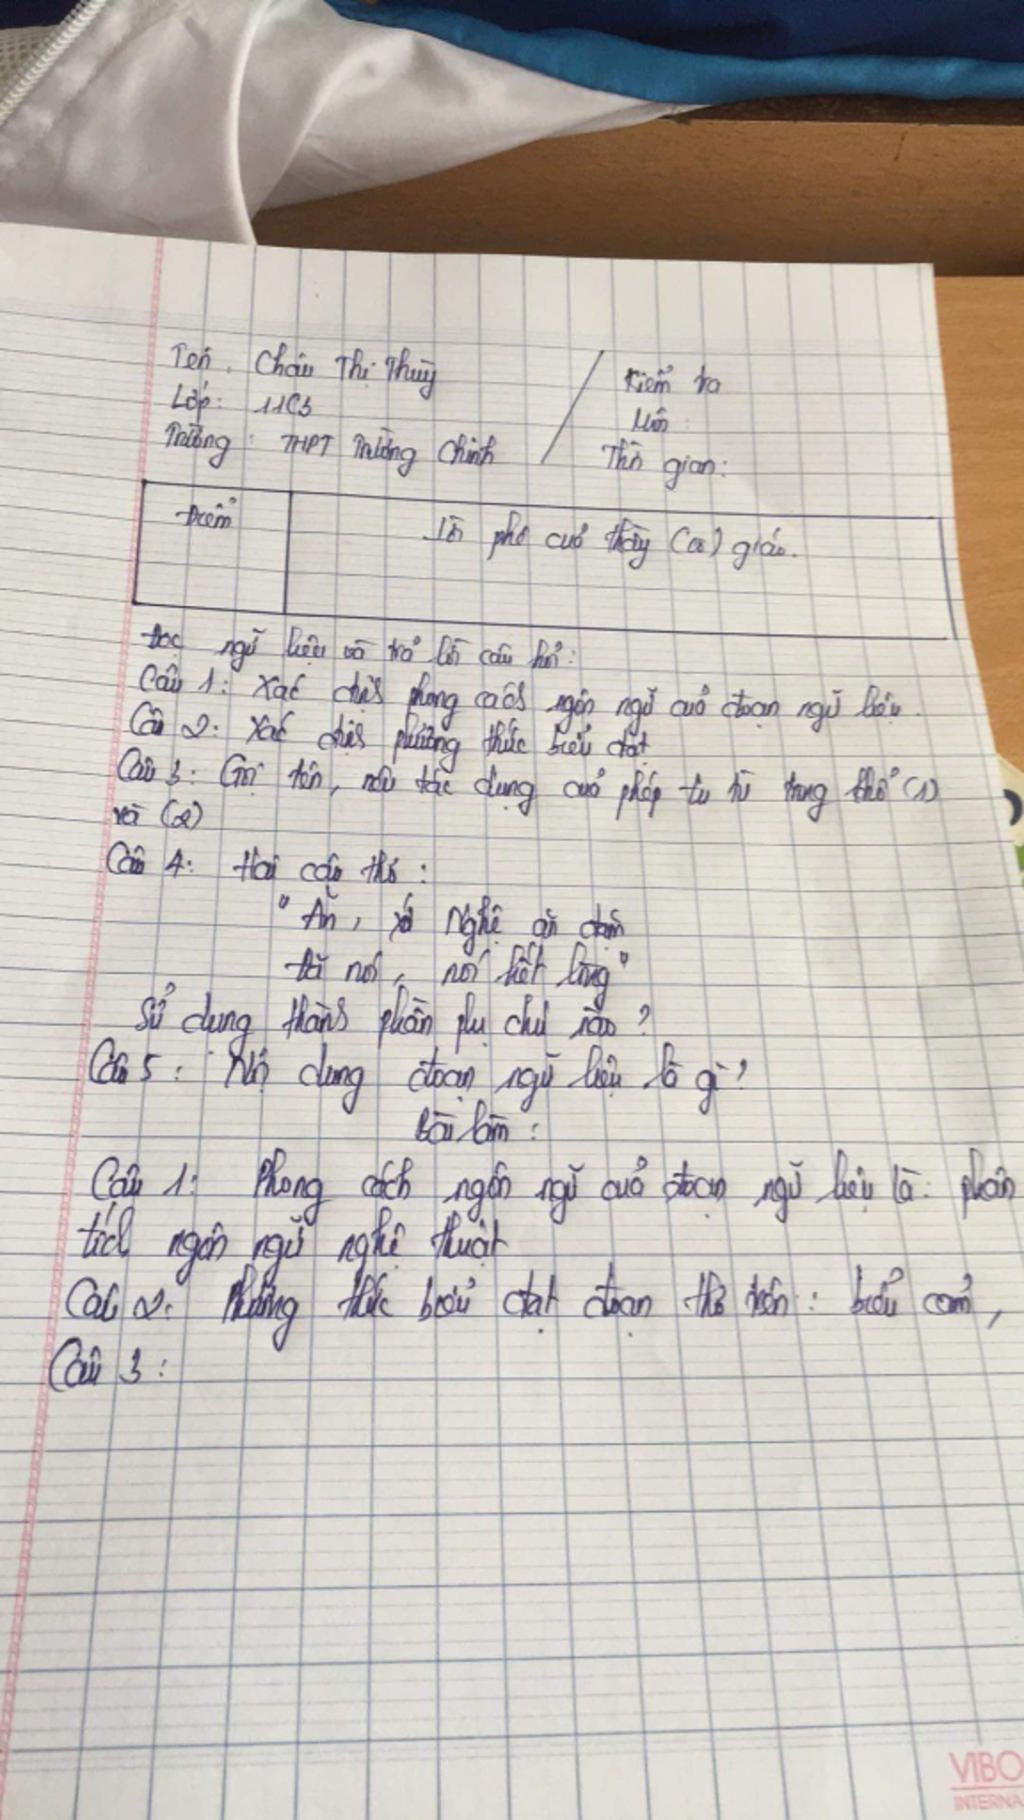 Tên: Châu Thị Thuỳ
Lớp: 11C3
Trường: THPT Trường Chinh
Kiểm tra
Môn:
Thời gian:
Điểm
Lời phê của thầy (cô) giáo.
Đọc ngữ liệu và trả lời câu hỏi:
Câu 1: Xác định phong cách ngôn ngữ của đoạn ngữ liệu.
Câu 2: Xác định phương thức biểu đạt
Câu 3: Gọi tên, nêu tác dụng của phép tu từ trong thơ (1)
và (2)
Câu 4: Hai câu thơ:
"Ăn, xứ Nghệ ăn đậm
Đã nói, nói hết lòng"
Sử dụng thành phần phụ chú nào?
Câu 5: Nội dung đoạn ngữ liệu là gì?
Bài làm:
Câu 1: Phong cách ngôn ngữ của đoạn ngữ liệu là: phân
tích ngôn ngữ nghệ thuật
Câu 2: Phương thức biểu đạt đoạn thơ trên: biểu cảm,
Câu 3:
VIBO
INTERNA